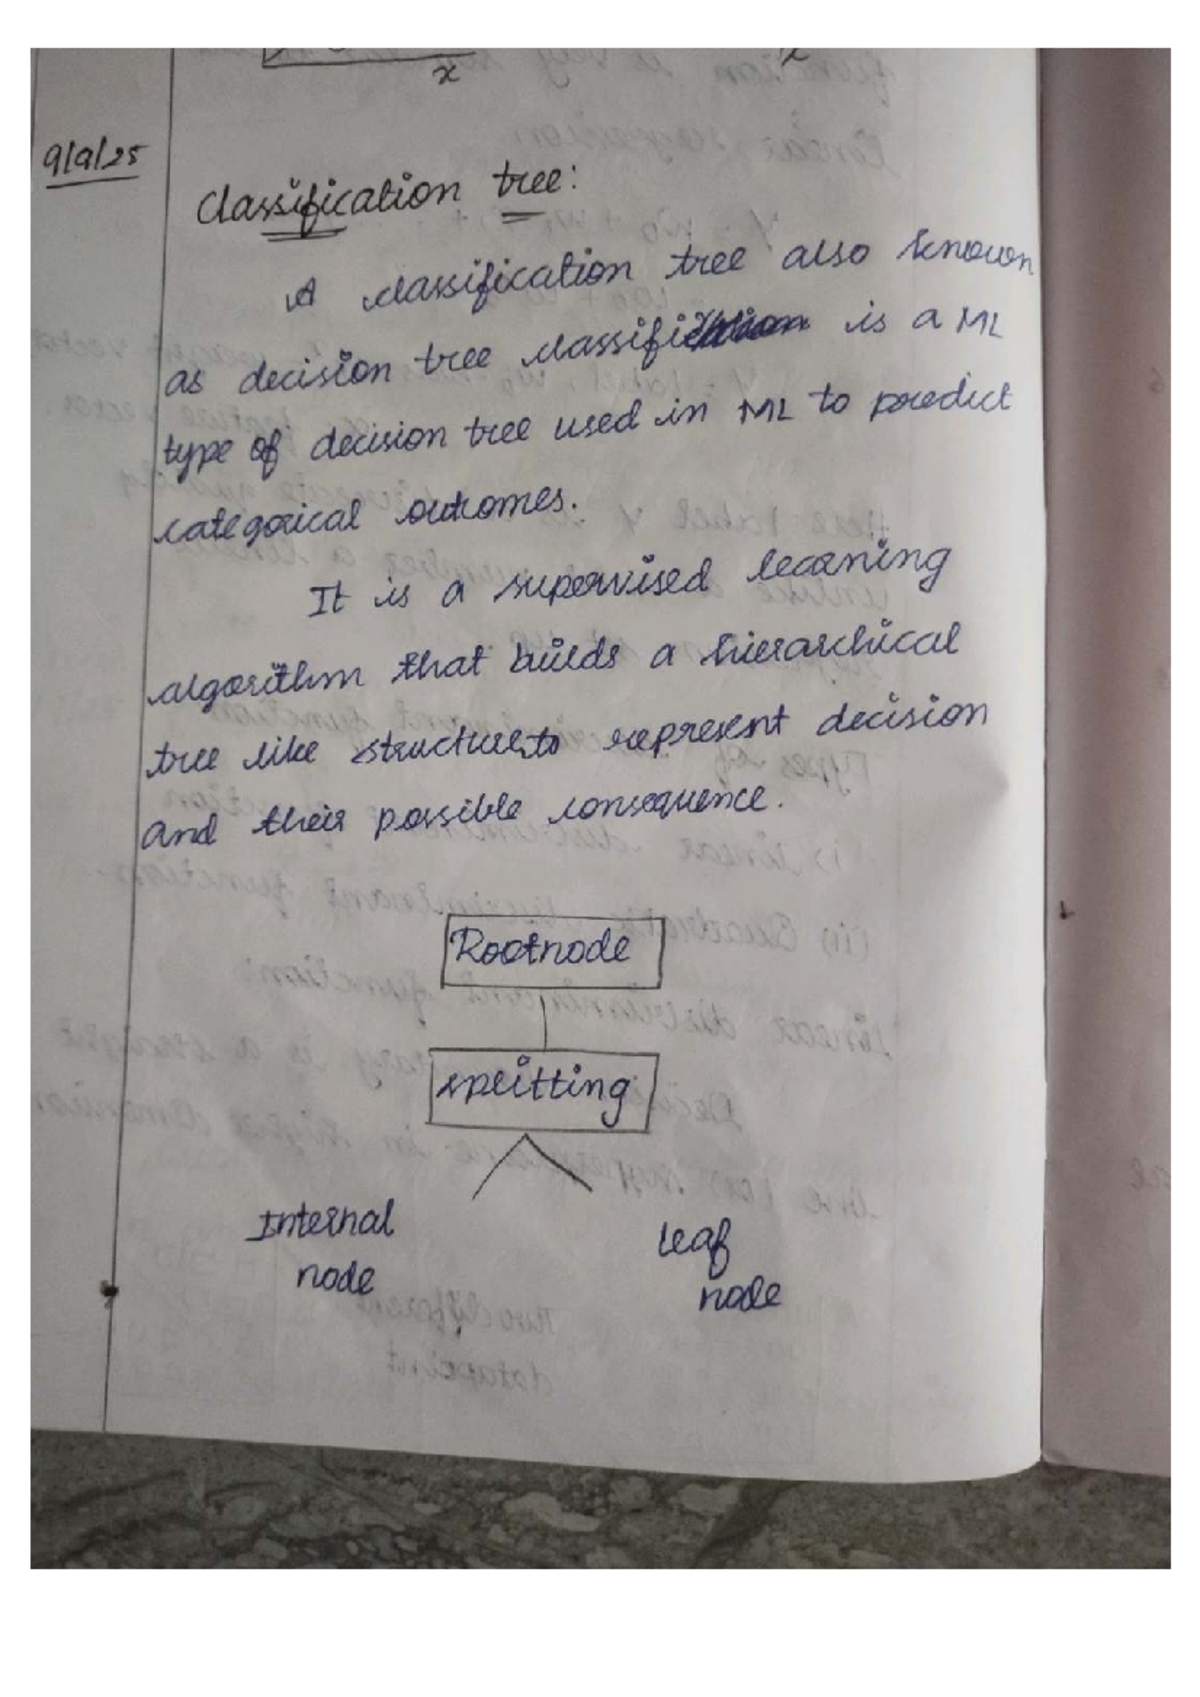 x
x
9/9/25
Classification tree:
A classification tree also known
as decision tree classifi is a ML
type of decision tree used in ML to predict
categorical outcomes.
It is a supervised learning
algorithm that builds a hierarchical
tree like structure to represent decision
and their possible consequence.
Rootnode
splitting
Internal
node
leaf
node